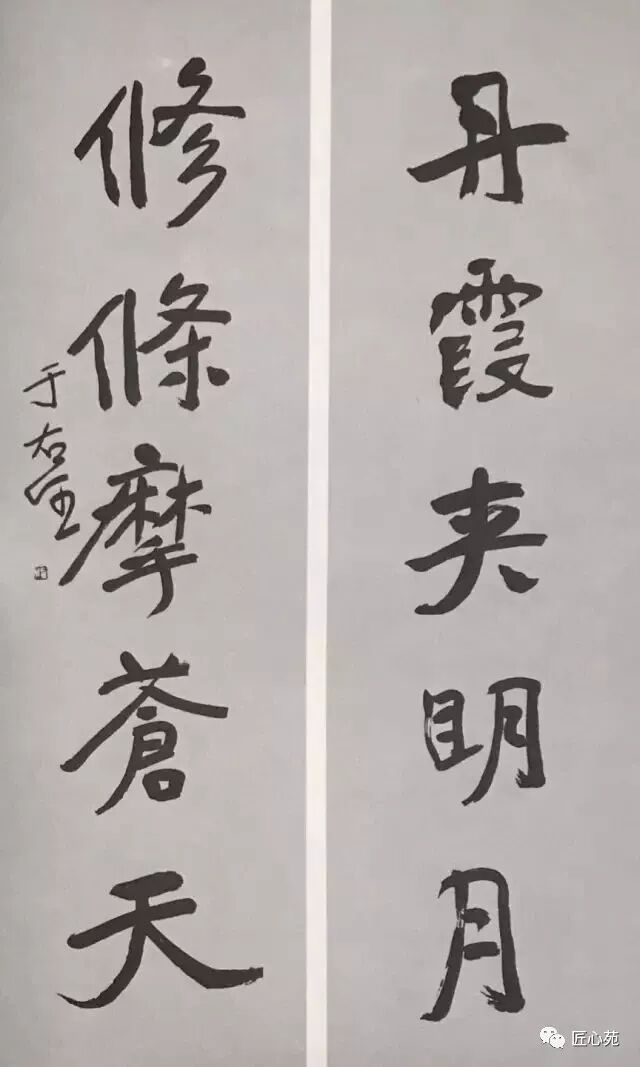 丹霞夹明月
修條摩蒼天
于右任
匠心苑